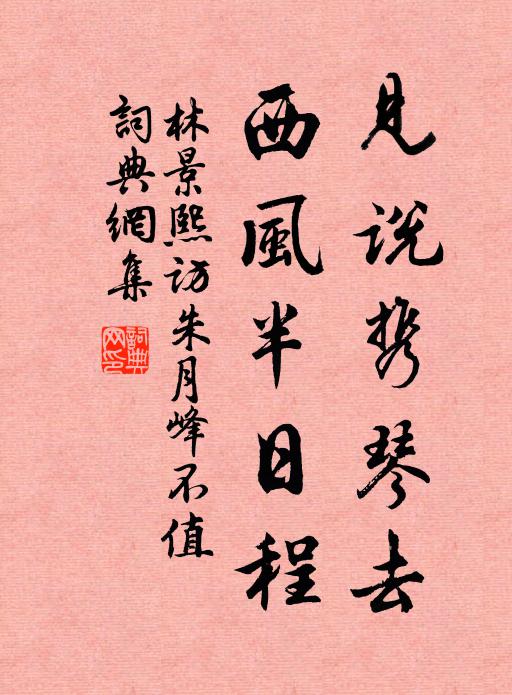 見説携琴去
西風半日程
林景熙訪朱月峰不值
詞典網集
詞典網印